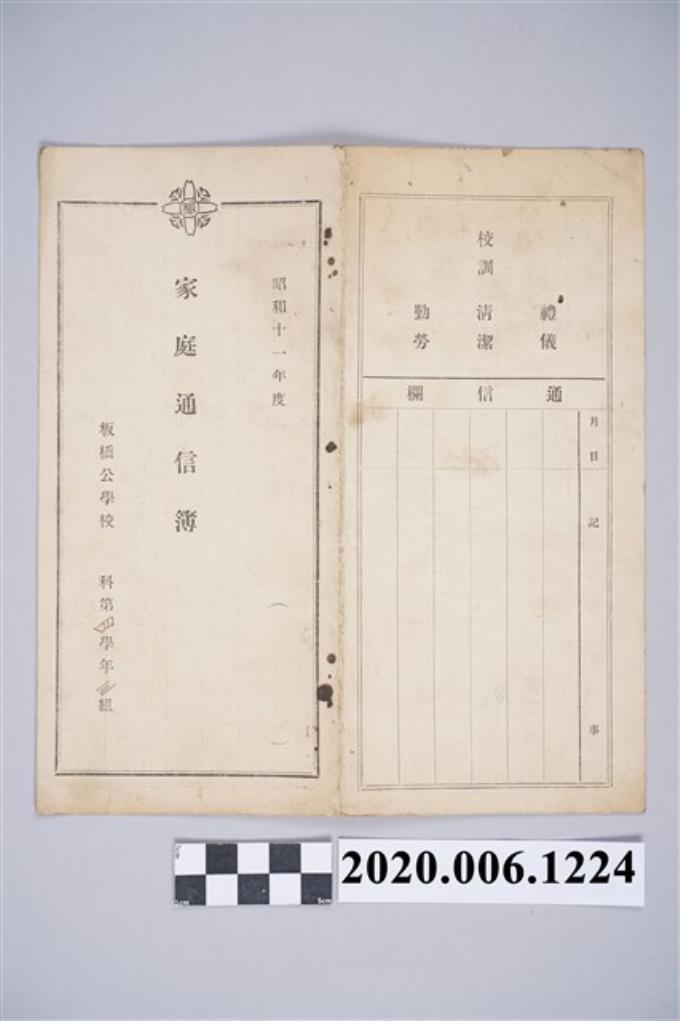 校訓
禮儀
清潔
勤勞
通信欄
月日
記事
昭和十一年度
（ ）
家庭通信簿
板橋公學校 科第四學年二組
2020.006.1224
0cm
5cm